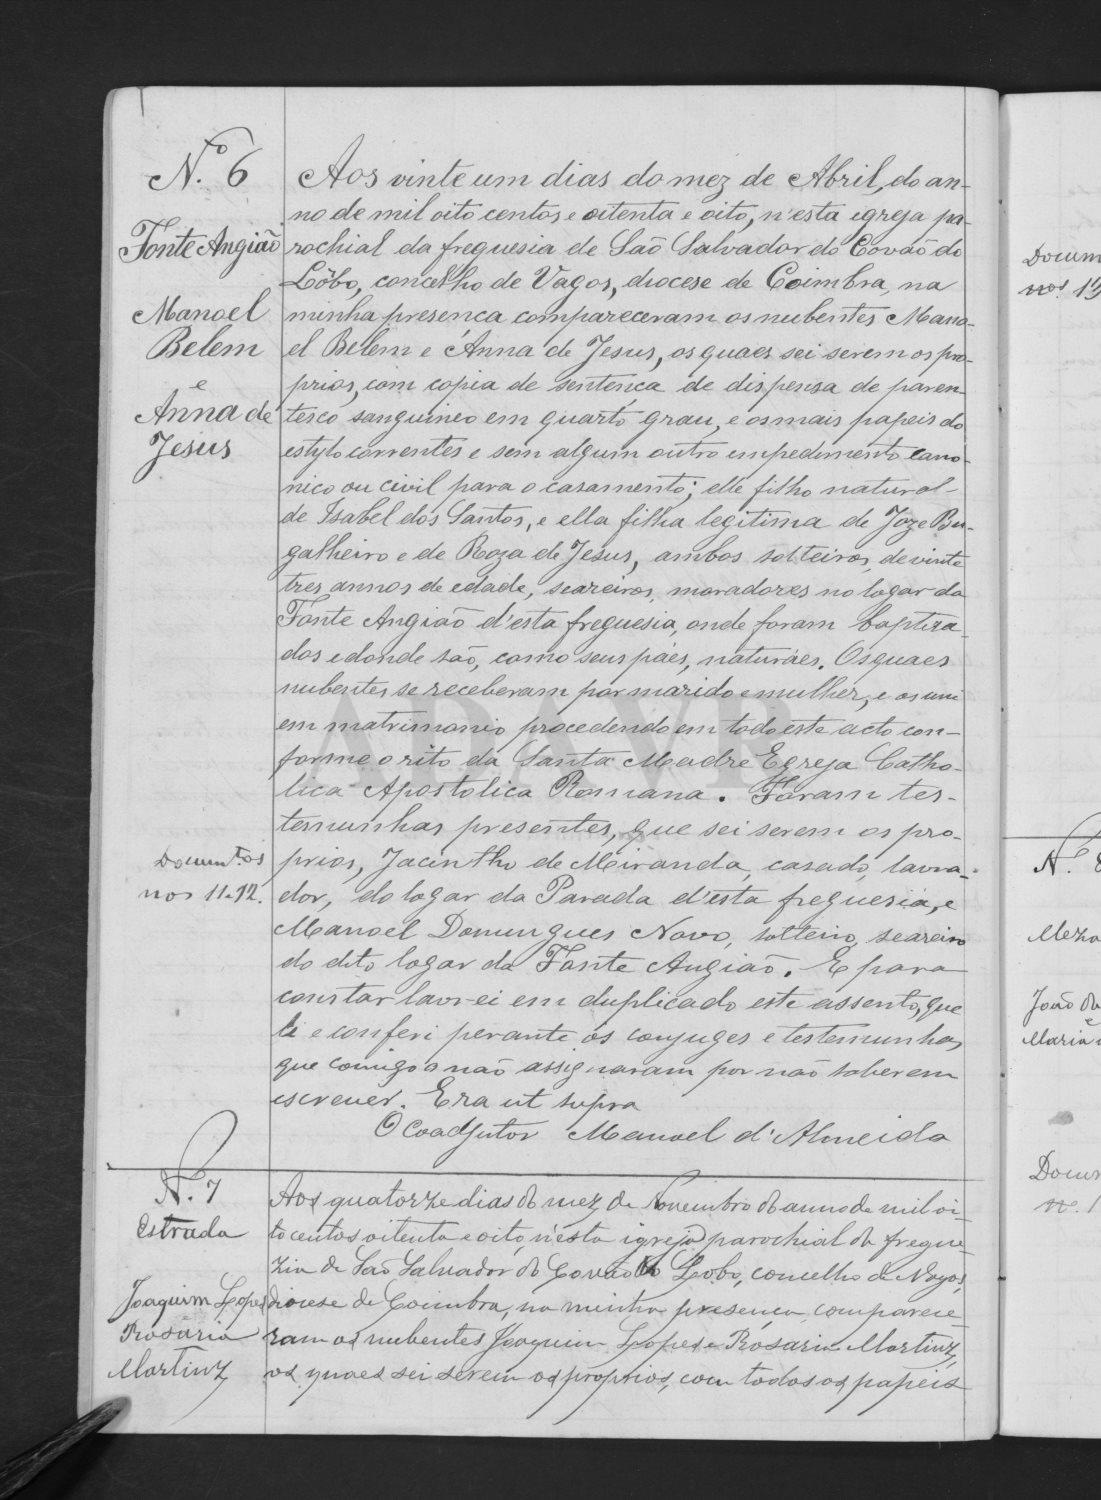 N.º 6
Fonte Angião
Manoel
Belem
e
Anna de
Jesus
Documtos
nos 11-12.
Aos vinte um dias do mez de Abril, do an-
no de mil oito centos e oitenta e oito, n'esta egreja pa-
rochial da freguesia de São Salvador do Covão do
Lôbo, concelho de Vagos, diocese de Coimbra, na
minha presença compareceram os nubentes Mano-
el Belem e Anna de Jesus, os quaes sei serem os pro-
prios, com copia de sentença de dispensa de paren-
tesco sanguineo em quarto grau, e os mais papeis do
estylo correntes e sem algum outro impedimento cano-
nico ou civil para o casamento; elle filho natural
de Isabel dos Santos, e ella filha legitima de Joze Bu-
galheiro e de Roza de Jesus, ambos solteiros, de vinte
tres annos de edade, seareiros, moradores no logar da
Fonte Angião d'esta freguesia, onde foram baptiza-
dos e donde são, como seus páes, naturáes. Os quaes
nubentes se receberam por marido e mulher, e os uni
em matrimonio procedendo em todo este acto con-
forme o rito da Santa Madre Egreja Catho-
lica Apostolica Romana. Foram tes-
temunhas presentes, que sei serem os pro-
prios, Jacintho de Miranda, casado, lavra-
dor, do logar da Parada d'esta freguesia, e
Manoel Domingues Novo, solteiro, seareiro
do dito logar da Fonte Angião. E para
constar lavrei em duplicado este assento, que
li e conferi perante os conjuges e testemunhas,
que comigo não assignaram por não saberem
escrever. Era ut supra
O Coadjutor Manoel d'Almeida
N. 7
Estrada
Joaquim Lopes
Rosaria
Martinz
Aos quatorze dias do mez de Novembro do anno de mil oi-
to centos oitenta e oito, n'esta igreja parochial da fregue-
zia de São Salvador do Covão do Lobo, concelho de Vagos,
diocese de Coimbra, na minha presença comparece-
ram os nubentes Joaquim Lopes e Rosaria Martinz,
os quaes sei serem os proprios, com todos os papeis
Docum
nos. 13
N. 8
João da
e
Maria
Docum
n. 1
ADAVR